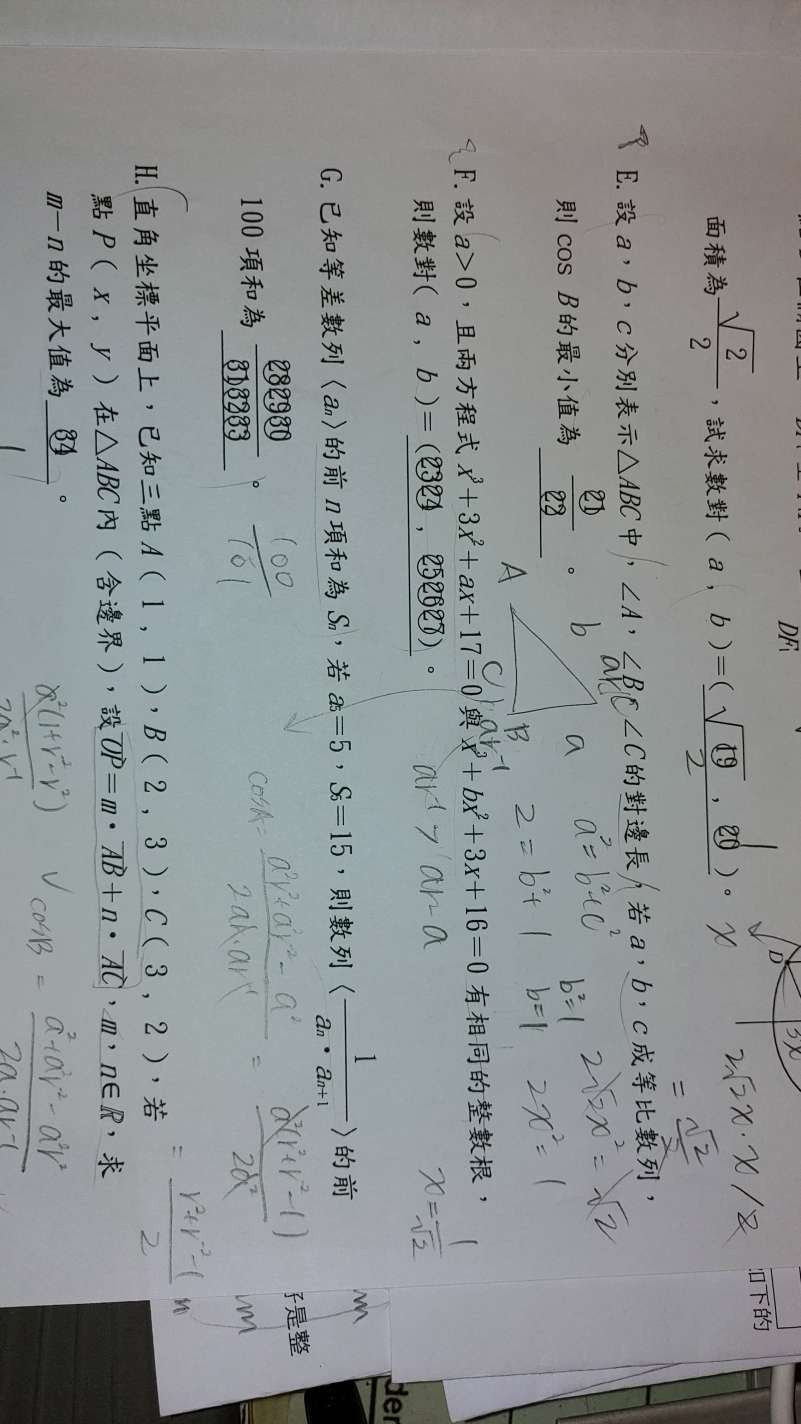 面積為 √2/2，試求數對（a，b）=（√⑲/2，⑳）。
E. 設 a，b，c 分別表示△ABC中，∠A，∠B，∠C的對邊長，若 a，b，c 成等比數列，
則 cos B 的最小值為 ㉑/㉒。
F. 設 a>0，且兩方程式 x³+3x²+ax+17=0 與 x³+bx²+3x+16=0 有相同的整數根，
則數對（a，b）=（㉓㉔，㉕㉖㉗）。
G. 已知等差數列〈aₙ〉的前 n 項和為 Sₙ，若 a₅=5，S₅=15，則數列〈1/(aₙ·aₙ₊₁)〉的前
100 項和為 ㉘㉙㉚/㉛㉜㉝。
100/101
H. 直角坐標平面上，已知三點 A（1，1），B（2，3），C（3，2），若
點 P（x，y）在△ABC內（含邊界），設 OP=m·AB+n·AC，m，n∈R，求
m−n 的最大值為 ㉞。
A
b
a
B
C
ar⁻¹
a²=b²+c²
2=b²+1
b²=1
b=1
2√2x²=√2
2x²=1
x=1/√2
=√2/2
cosA=(a²r²+a²r⁻²-a²)/(2ar·ar⁻¹)
=a²(r²+r⁻²-1)/2a²
=(r²+r⁻²-1)/2
√ cosB=
好是整
如下的
der